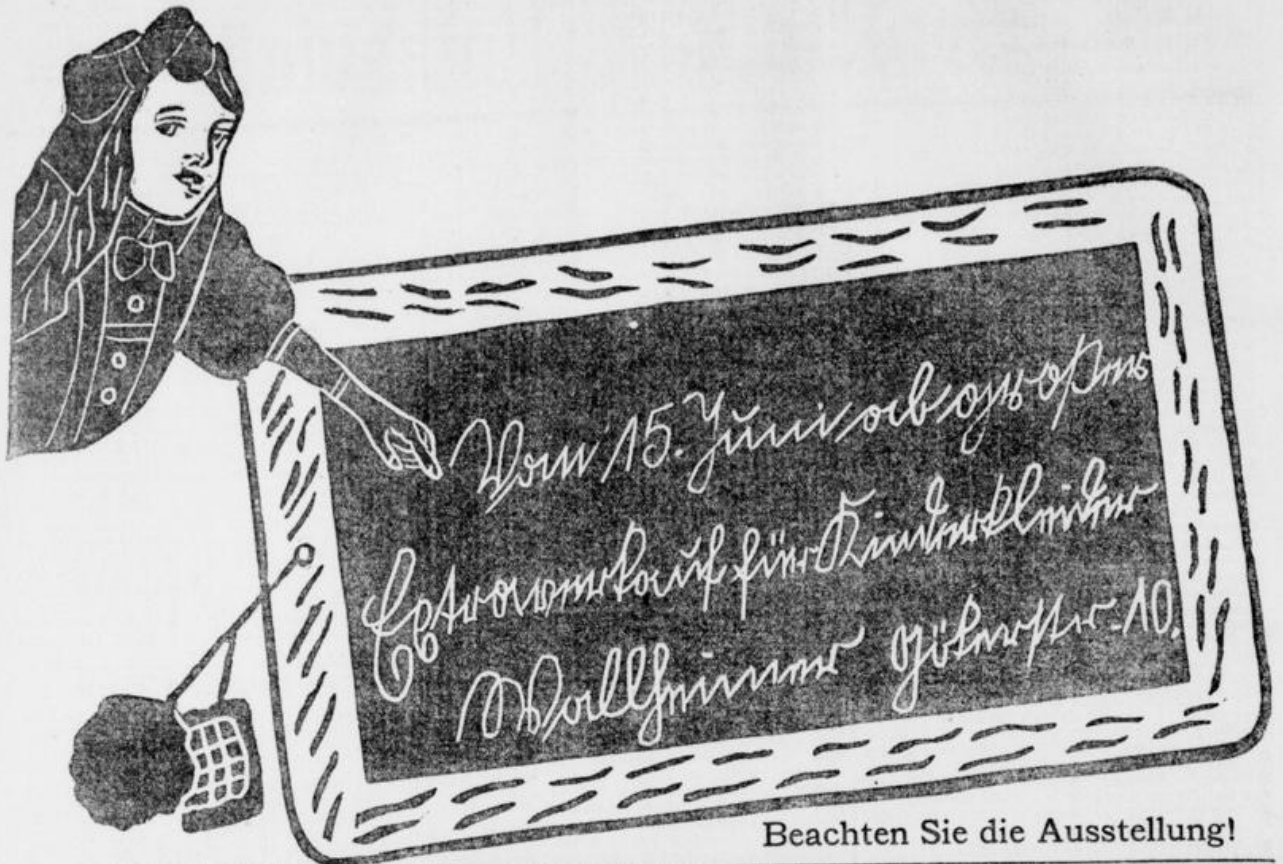 Vom 15. Juni ab großer
Extraverkauf für Kinderkleider
Wallheimer Gökerstr. 10.
Beachten Sie die Ausstellung!